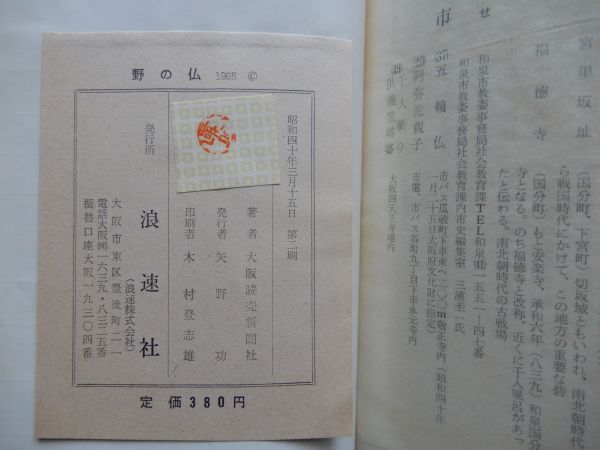 宮里坂址
(国分町、下宮町)切坂城ともいわれ、南北朝時代か
ら戦国時代にかけて、この地方の重要な砦
福徳寺
(国分町)もと安楽寺、承和六年(八三九)和泉国分
寺となる。のち福徳寺と改称、近くに千人風呂があっ
たと伝わる。南北朝時代の古戦場
せ
和泉市教委事務局社会教育課TEL和泉㊶一五五一~四七番
和泉市教委事務局社会教育課内市史編集室 三浦圭一氏
市
五輪仏
市バス瓜破町下車東へ二〇〇m敬正寺内(昭和四十年
一月二十五日大阪府文化財に指定)
阿弥陀親子
市電、市バス谷町九丁目下車永元寺内
千人斬り
供養笠塔婆
大阪四天王寺境内
野の仏 1965 ©
昭和四十年三月十五日 第二刷
著者 大阪読売新聞社
発行者 矢野功
印刷者 木村登志雄
発行所
浪速社
(浪速株式会社)
大阪市東区豊後町二一
電話大阪 一六三九・八三二五番
振替口座大阪一九三〇四番
定価380円